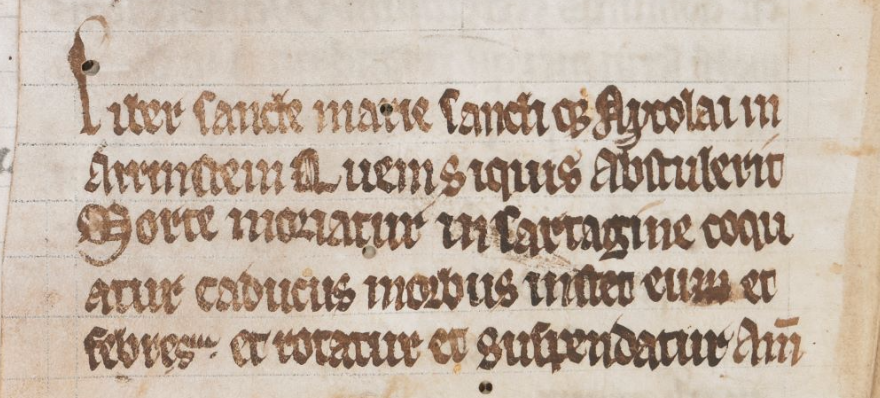 Liber sancte marie sancti qꝫ Nycolai in
Arrinstein Quem siquis Abstulerit
Morte moriatur in sartagine coqu
atur caducus morbus instet eum et
febres et rotatur et suspendatur Am̅